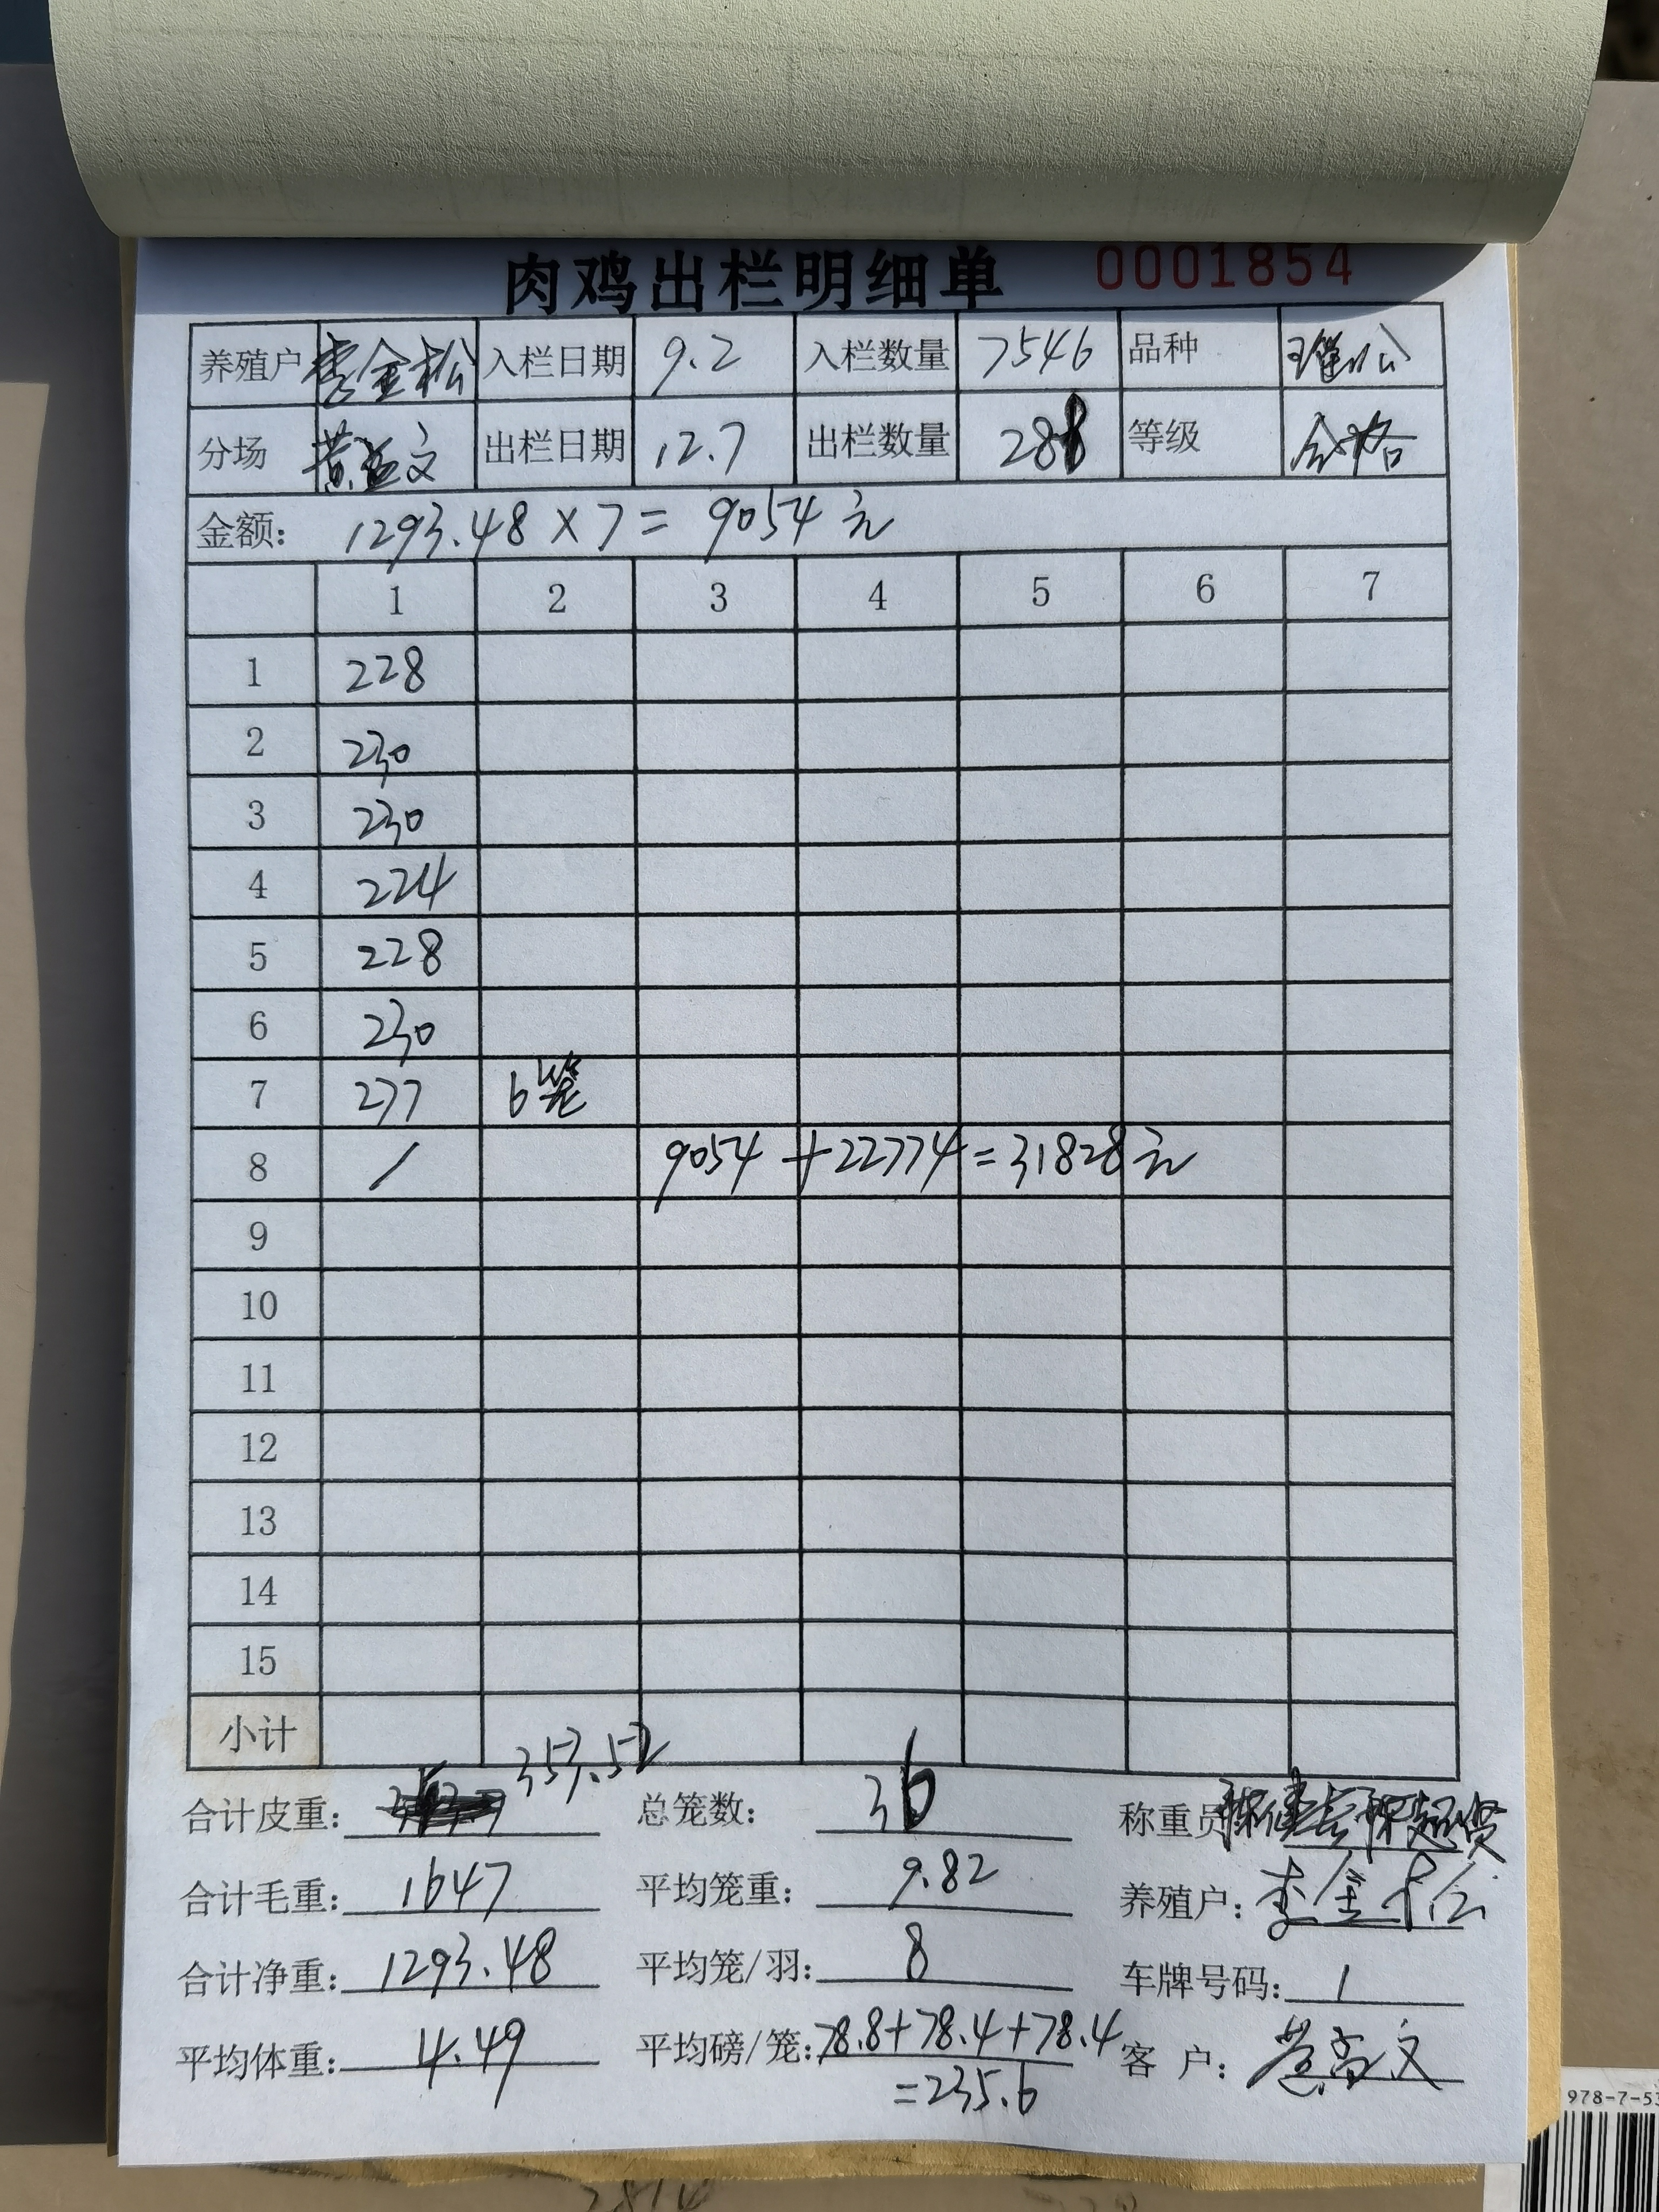 肉鸡出栏明细单 0001854
养殖户 李金松 入栏日期 9.2 入栏数量 7546 品种
分场 黄益文 出栏日期 12.7 出栏数量 288 等级 合格
金额: 1293.48 × 7 = 9054 元
1 2 3 4 5 6 7
1 228
2 230
3 230
4 224
5 228
6 230
7 277 6笼
8 / 9054 + 22774 = 31828 元
9
10
11
12
13
14
15
小计
合计皮重: 353.52 总笼数: 36 称重员
合计毛重: 1647 平均笼重: 9.82 养殖户: 李金松
合计净重: 1293.48 平均笼/羽: 8 车牌号码: 1
平均体重: 4.49 平均磅/笼: 78.8+78.4+78.4 客 户: 黄益文
=235.6
978-7-53